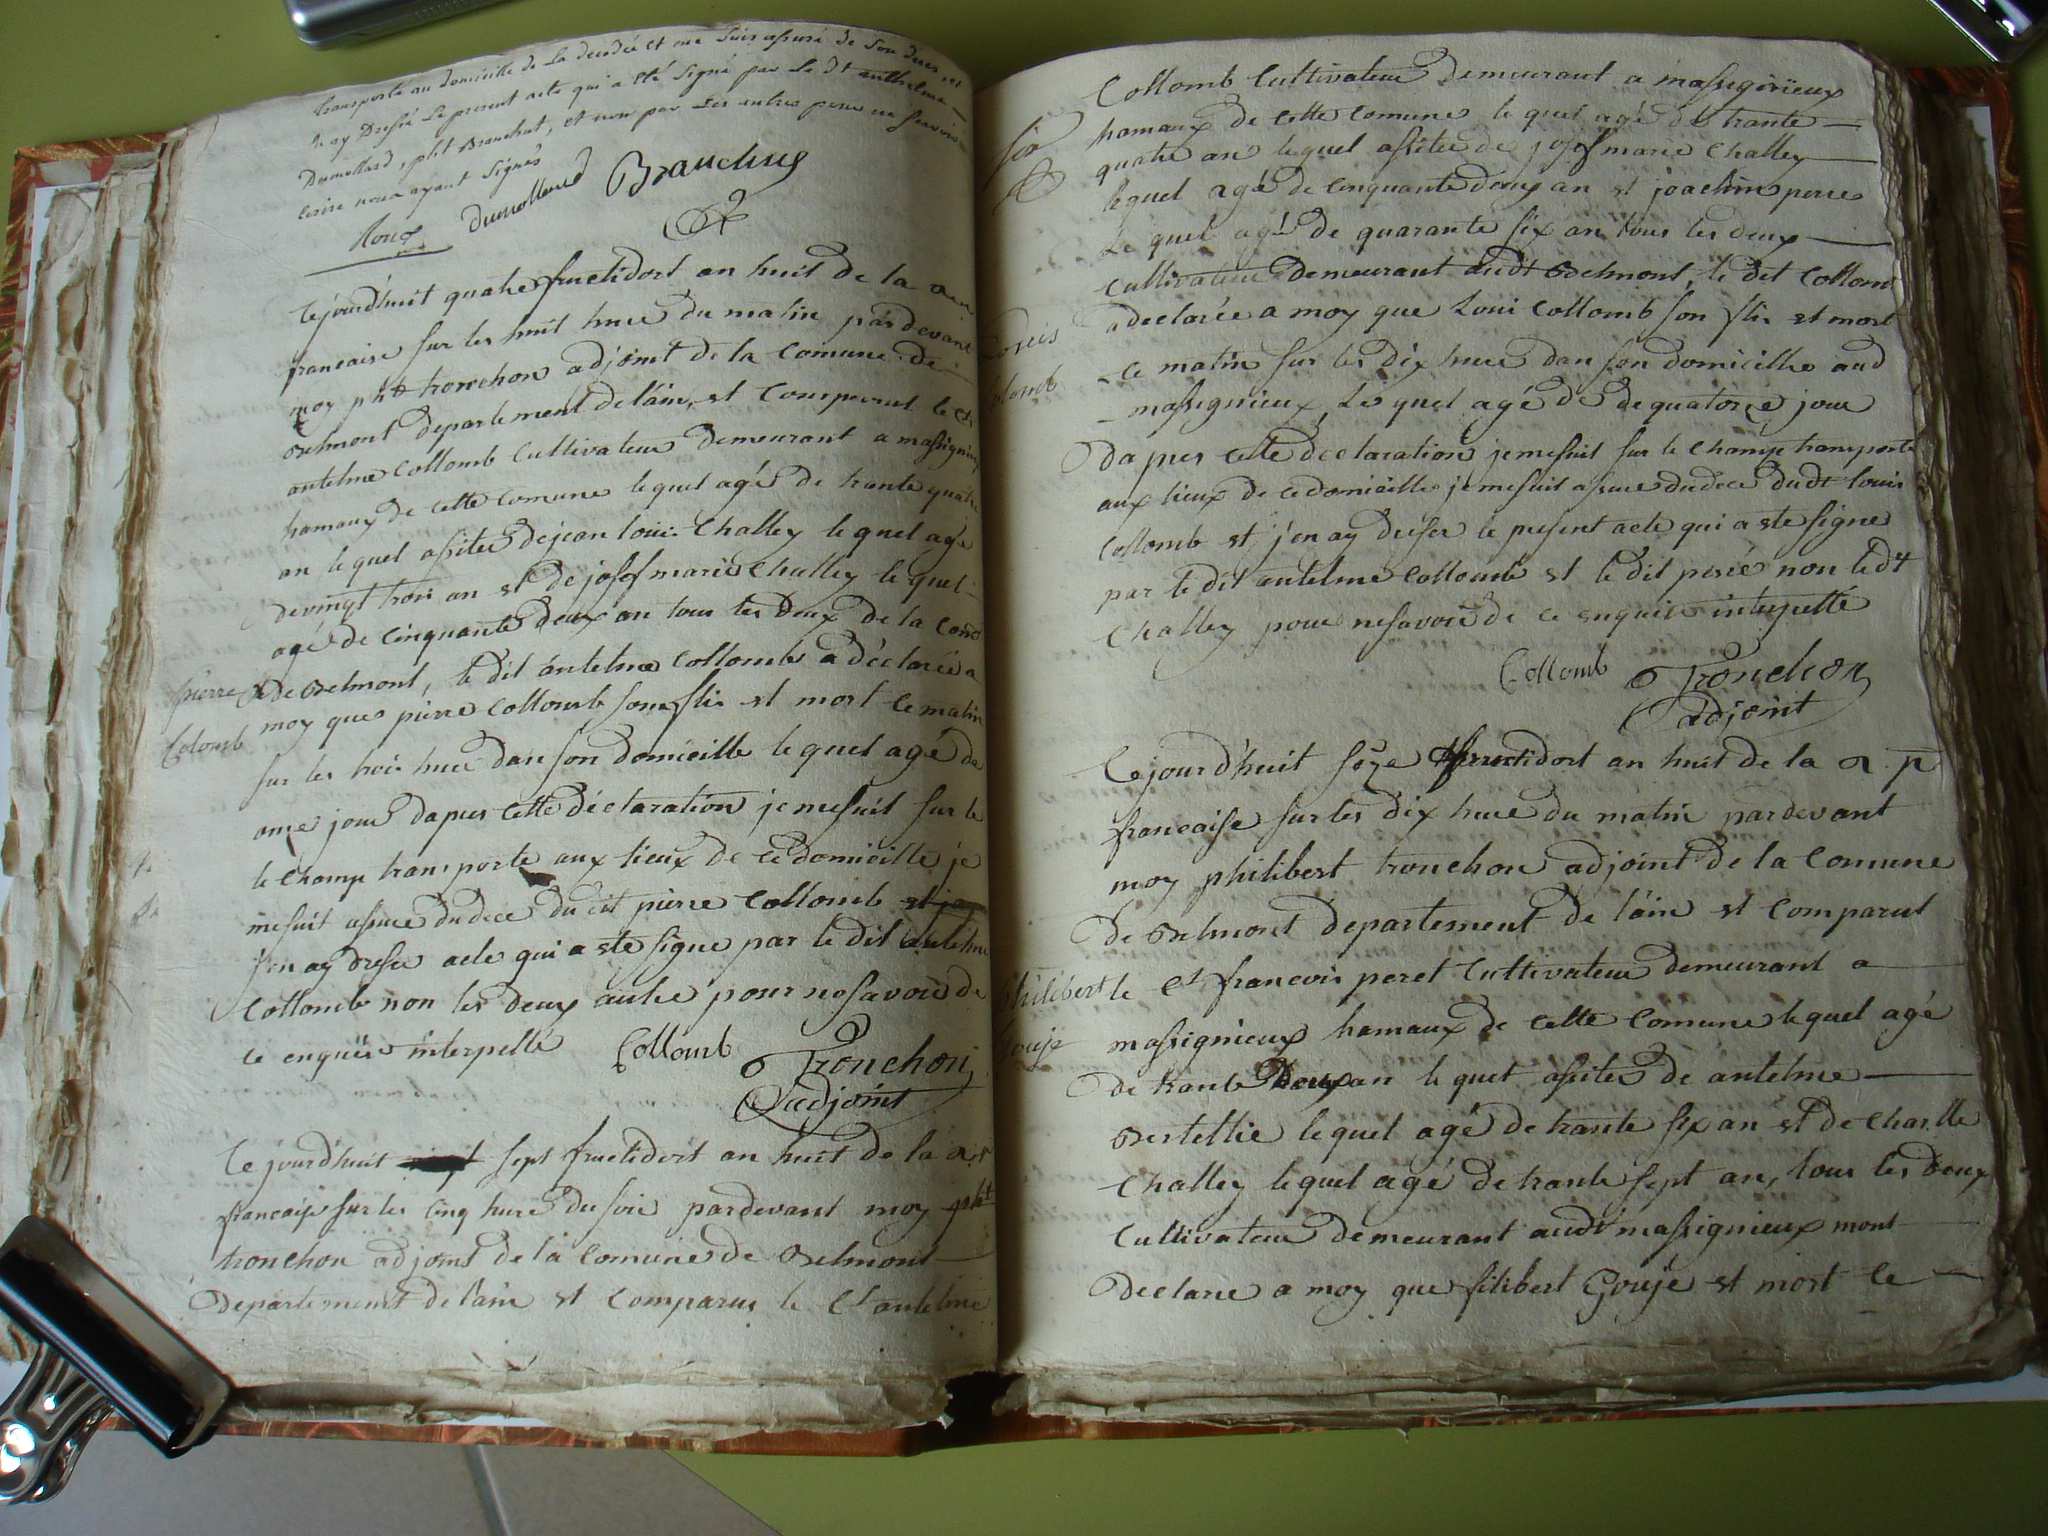 transporté au domicille de La decedée et me suis assuré de son deces
J'en ay Dressé Le present acte qui a été signé par Le dt anthelme
Dumollard, phit Brauchut, et non par Les autres pour ne scavoir
ecrire nous ayant signés
Roux dumollard Brauchus
Cejourdhuit quatre fructidort an huit de la
francaise sur les huit hure du matin pardevant
moy pht tronchon adjoint de la Comune de
Belmont departement de lain, st Comparut le Ct
antelme Collomb Cultivateur demeurant a massignieux
hamaux de cette Comune le quel agé de trante quatre
an le quel assites de jean loui Challey le quel agé
de vingt trois an st de josef marie Challey le quel
agé de Cinquante deux an tous les deux de la Como
de Belmont, le dit antelme Collomb a déclarée a
pierre
Colomb
moy que pierre Collomb son flis st mort Ce matin
sur les trois hure dan son domicille le quel agé de
onze jour dapres Cette déclaration je mesuit sur le
le Champ transporte aux lieux de ce domicille je
mesuit assure du dece du cit pierre Collomb
jen ay dresse acte qui a ste signe par le dit antelme
Collomb non les deux autre pour nesavoir de
ce enquis interpellé Collomb Tronchon
adjoint
Cejourdhuit sept fructidort an huit de la
francaise sur les Cinq hure du soir pardevant moy pht
tronchon adjoint de la Comune de Belmont
Departement de lain st Comparus le Ct antelme
Collomb Cultivateur demeurant a massignieux
hamaux de cette Comune le quel agé de trante
quatre an le quel assites de josef marie Challey
lequel agé de Cinquante deux an st joachim perre
Le quel agé de quarante six an tous les deux
Cultivateur demeurant audt Belmont, le dit Collomb
a declarée a moy que Loui Collomb son flis st mort
Louis
Colomb
ce matin sur les dix hure dan son domicille aud
massignieux, Le quel agé de de quatorze jour
dapres Cette déclaration je mesuit sur le Champ transporte
aux lieux de ce domicille je mesuit assure du dece dudt louis
Collomb st j'en ay dresser le present acte qui a ste signe
par le dit antelme Collomb st le dit perre non le dt
Challey pour nesavoir de ce enquis interpellé
Collomb Tronchon
adjoint
Cejourdhuit seze fructidort an huit de la
francaise sur les dix hure du matin pardevant
moy philibert tronchon adjoint de la Comune
de Belmont departement de lain st Comparut
philibert
Gouje
le Ct francois peret Cultivateur demeurant a
massignieux hamaux de cette Comune le quel agé
de trante deux an le quel assites de antelme
Bertellie le quel agé de trante six an st de Charlle
Challey lequel agé de trante sept an, tous les deux
Cultivateur demeurant audt massignieux mont
declare a moy que filibert Gouje st mort le